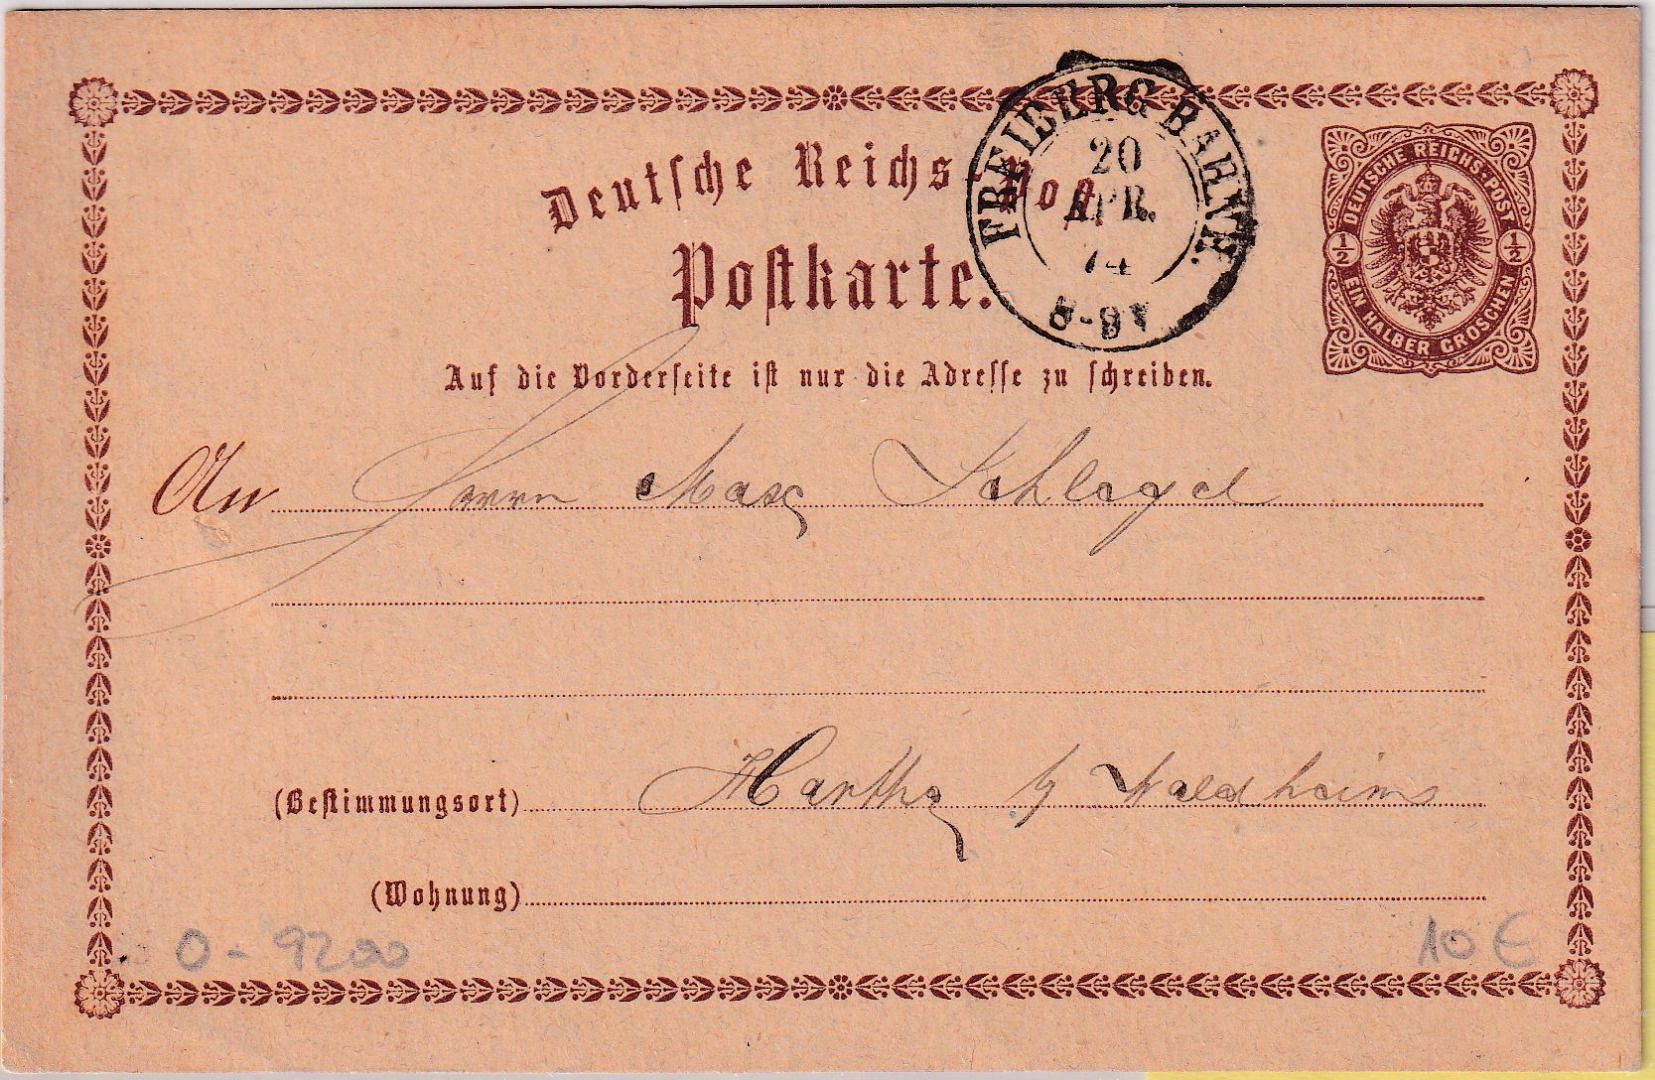 Deutsche Reichs-Post.
Postkarte.
FREIBERG BAHNH.
20
APR.
74
8-9V
DEUTSCHE REICHS-POST
½ ½
EIN HALBER GROSCHEN
Auf die Vorderseite ist nur die Adresse zu schreiben.
An Herrn Max Schlegel
(Bestimmungsort) Hartha b/ Waldheim
(Wohnung)
0-9200
10 €